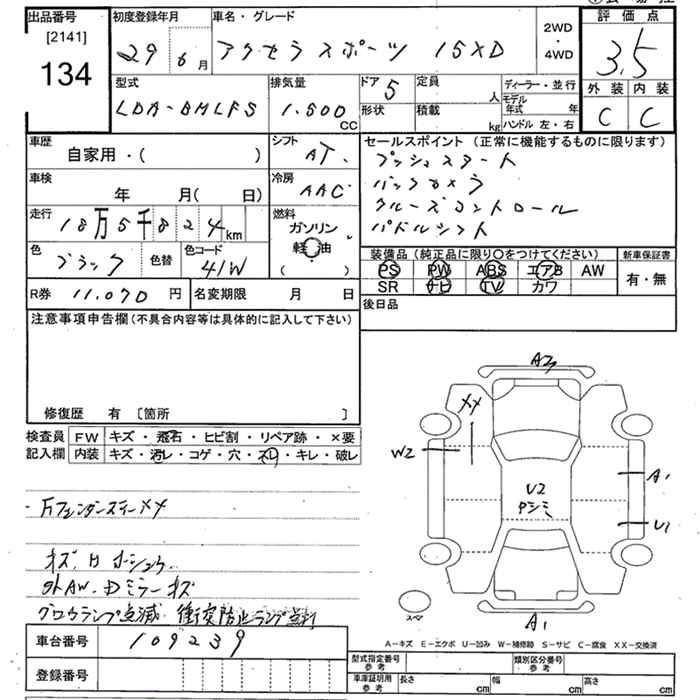 出品番号
[2141]
134
初度登録年月
29
6月
車名・グレード
アクセラスポーツ 15XD
2WD
・
4WD
評価点
3.5
外装 内装
C C
型式
LDA-BMLFS
排気量
1.500
CC
ドア
5
形状
定員
人
積載
kg
ディーラー・並行
モデル年式 年
ハンドル 左・右
車歴
自家用・( )
シフト
AT
車検
年 月( 日)
冷房
AAC
走行
18万5千824km
燃料
ガソリン
軽油
( )
色
ブラック
色替
色コード
41W
R券 11.070 円
名変期限 月 日
セールスポイント(正常に機能するものに限ります)
プッシュスタート
バックカメラ
クルーズコントロール
パドルシフト
装備品(純正品に限り〇をつけてください)
PS PW ABS エアB AW
SR ナビ TV カワ
新車保証書
有・無
後日品
注意事項申告欄(不具合内容等は具体的に記入して下さい)
修復歴 有 [箇所 ]
検査員
記入欄
FW キズ・飛石・ヒビ割・リペア跡・×要
内装 キズ・汚レ・コゲ・穴・スレ・キレ・破レ
キズ、H ホショウ
外AW、Dミラーキズ
グロウランプ点滅 衝突防止ランプ点灯
車台番号
109239
登録番号
A2
XX
W2
U2
A1
U1
A1
A-キズ E-エクボ U-凹み W-補修跡 S-サビ C-腐食 XX-交換済
型式指定番号
参考
類別区分番号
参考
車庫証明用
参考
長さ cm
幅 cm
高さ cm